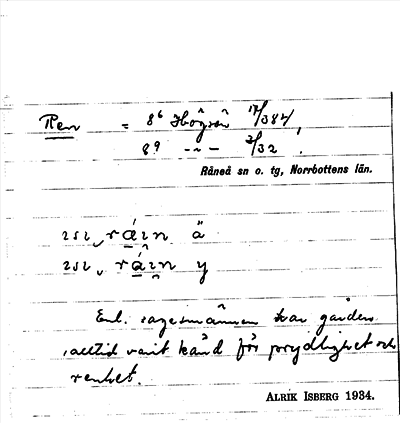 Ren = 8⁶ Högsön 17/384,
8⁹ -"- 2/32.
Råneå sn o. tg, Norrbottens län.
ä
y
Enl. sagesmännen har gården
alltid varit känd för prydlighet och
renhet.
ALRIK ISBERG 1934.